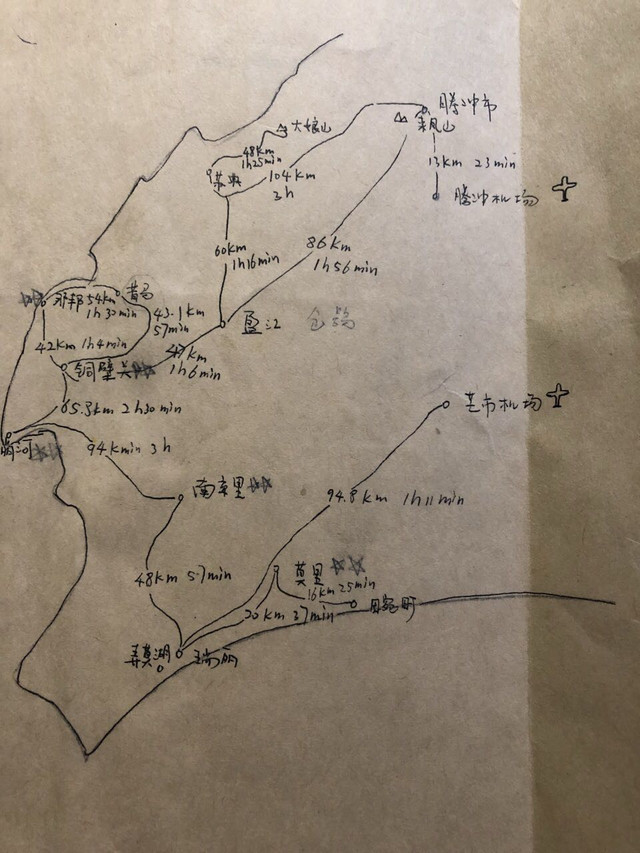 腾冲市
来凤山
大娘山
48km
1h25min
苏典
104km
3h
13km 23min
腾冲机场
60km
1h16min
86km
1h56min
那邦
54km
1h30min
昔马
43.1km
57min
盈江
42km 1h4min
铜壁关
47km
1h6min
65.3km 2h30min
芒市机场
94kmin 3h
南奔里
94.8km 1h11min
48km 57min
莫里
16km 25min
20km 37min
畹町
弄莫湖
瑞丽